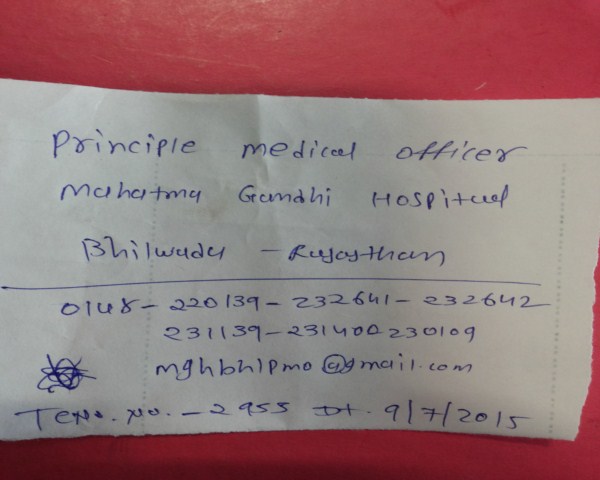 Principle medical officer
Mahatma Gandhi Hospital
Bhilwada - Rajasthan
0148 - 220139 - 232641 - 232642
231139 - 231400 230109
mghbhlpmo@gmail.com
No. - 2955 Dt. 9/7/2015